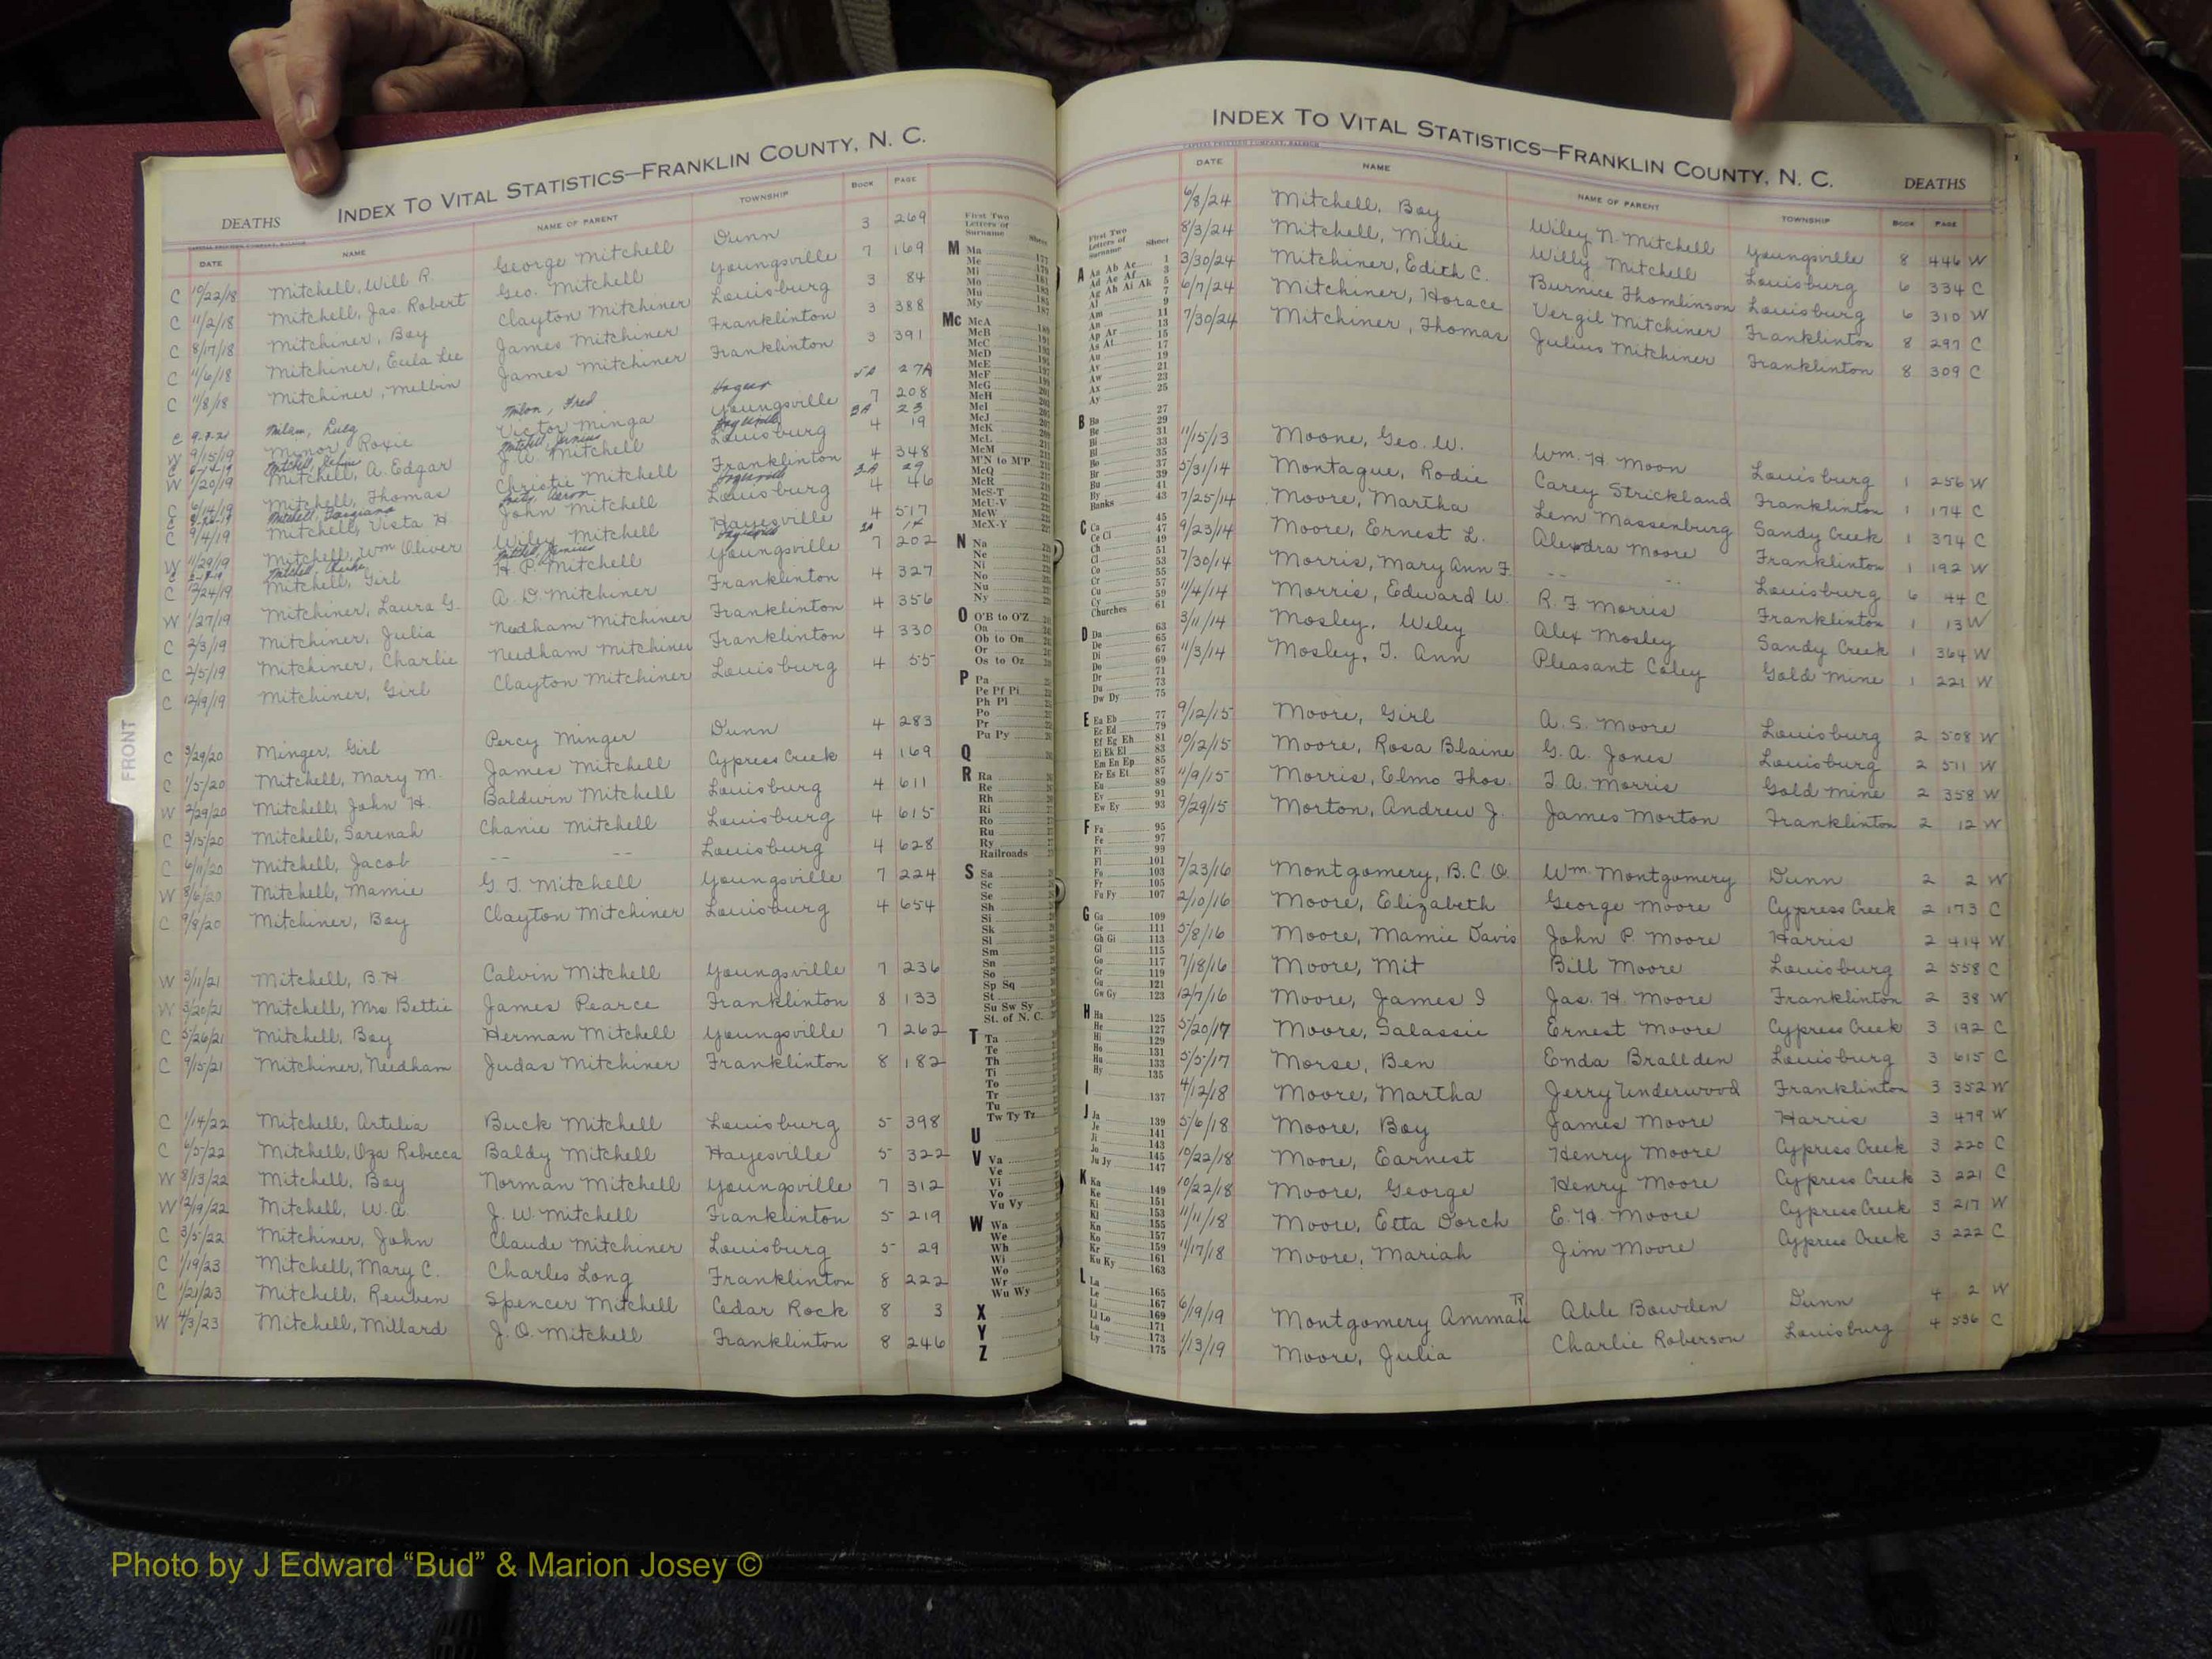 INDEX TO VITAL STATISTICS—FRANKLIN COUNTY, N. C.
DEATHS
DATE NAME NAME OF PARENT TOWNSHIP BOOK PAGE
C 10/22/18 Mitchell, Will R. George Mitchell Dunn 3 269
C 11/2/18 Mitchell, Jas. Robert Geo. Mitchell Youngsville 7 169
C 8/17/18 Mitchiner, Boy Clayton Mitchiner Louisburg 3 84
C 11/6/18 Mitchiner, Eula Lee James Mitchiner Franklinton 3 388
C 11/8/18 Mitchiner, Melbin James Mitchiner Franklinton 3 391
C 9-7-21 Milam, Milon, Fred 5A 27A
W 9/15/19 Minor, Roxie Victor Minga Youngsville 7 208
Mitchell, Junius 3A 23
W 1/20/19 Mitchell, A. Edgar J.A. Mitchell Louisburg 4 19
C 6/14/19 Mitchell, Thomas Christie Mitchell Franklinton 4 348
Mitchell, Georgiana 3A 29
C 9/4/19 Mitchell, Vista H John Mitchell Louisburg 4 46
W 11/29/19 Mitchell, Wm Oliver Wiley Mitchell Hayesville 4 517
Mitchell, Mitchell, Junius
C 12/24/19 Mitchell, Girl H. P. Mitchell Youngsville 7 202
W 1/27/19 Mitchiner, Laura G. A. D. Mitchiner Franklinton 4 327
C 2/3/19 Mitchiner, Julia Needham Mitchiner Franklinton 4 356
C 2/5/19 Mitchiner, Charlie Needham Mitchiner Franklinton 4 330
C 12/19/19 Mitchiner, Girl Clayton Mitchiner Louisburg 4 55
C 3/29/20 Minger, Girl Percy Minger Dunn 4 283
C 1/5/20 Mitchell, Mary M. James Mitchell Cypress Creek 4 169
W 2/29/20 Mitchell, John H. Baldwin Mitchell Louisburg 4 611
C 3/15/20 Mitchell, Sarenah Chanie Mitchell Louisburg 4 615
C 6/11/20 Mitchell, Jacob -- -- Louisburg 4 628
W 8/6/20 Mitchell, Mamie G. T. Mitchell Youngsville 7 224
C 9/8/20 Mitchiner, Boy Clayton Mitchiner Louisburg 4 654
W 3/11/21 Mitchell, B. H Calvin Mitchell Youngsville 7 236
W 3/20/21 Mitchell, Mrs Bettie James Pearce Franklinton 8 133
C 5/26/21 Mitchell, Boy Herman Mitchell Youngsville 7 262
C 9/15/21 Mitchiner, Needham Judas Mitchiner Franklinton 8 182
C 1/14/22 Mitchell, Artelia Buck Mitchell Louisburg 5 398
C 6/5/22 Mitchell, Oza Rebecca Baldy Mitchell Hayesville 5 322
W 8/13/22 Mitchell, Boy Norman Mitchell Youngsville 7 312
W 12/19/22 Mitchell, W. A. J. W. Mitchell Franklinton 5 219
C 3/5/22 Mitchiner, John Claude Mitchiner Louisburg 5 29
C 1/19/23 Mitchell, Mary C. Charles Long Franklinton 8 222
C 1/21/23 Mitchell, Reuben Spencer Mitchell Cedar Rock 8 3
W 4/3/23 Mitchell, Millard J. O. Mitchell Franklinton 8 246
FRONT
First Two Letters of Surname Sheet
M Ma
Me
Mi
Mo
Mu
My
Mc McA
McB
McC
McD
McE
McF
McG
McH
McI
McJ
McK
McL
McM
M'N to M'P
McQ
McR
McS-T
McU-V
McW
McX-Y
N Na
Ne
Ni
No
Nu
Ny
O O'B to O'Z
Oa
Ob to On
Or
Os to Oz
P Pa
Pe Pf Pi
Ph Pl
Po
Pr
Pu Py
Q
R Ra
Re
Rh
Ri
Ro
Ru
Ry
Railroads
S Sa
Sc
Se
Sh
Si
Sk
Sl
Sm
Sn
So
Sp Sq
St
Su Sw Sy
St. of N. C.
T Ta
Te
Th
Ti
To
Tr
Tu
Tw Ty Tz
U
V Va
Ve
Vi
Vo
Vu Vy
W Wa
We
Wh
Wi
Wo
Wr
Wu Wy
X
Y
Z
INDEX TO VITAL STATISTICS—FRANKLIN COUNTY, N. C.
DEATHS
DATE NAME NAME OF PARENT TOWNSHIP BOOK PAGE
First Two Letters of Surname Sheet
A Aa Ab Ac 1
Ad Ae Af 3
Ag Ah Ai Ak 5
Al 7
Am 9
An 11
Ap Ar 13
As At 15
Au 17
Av 19
Aw 21
Ax 23
Ay 25
B Ba 27
Be 29
Bi 31
Bl 33
Bo 35
Br 37
Bu 39
By 41
Banks 43
C Ca 45
Ce Ci 47
Ch 49
Cl 51
Co 53
Cr 55
Cu 57
Cy 59
Churches 61
D Da 63
De 65
Di 67
Do 69
Dr 71
Du 73
Dw Dy 75
E Ea Eb 77
Ec Ed 79
Ef Eg Eh 81
Ei Ek El 83
Em En Ep 85
Er Es Et 87
Eu 89
Ev 91
Ew Ey 93
F Fa 95
Fe 97
Fi 99
Fl 101
Fo 103
Fr 105
Fu Fy 107
G Ga 109
Ge 111
Gh Gi 113
Gl 115
Go 117
Gr 119
Gu 121
Gw Gy 123
H Ha 125
He 127
Hi 129
Ho 131
Hu 133
Hy 135
I 137
J Ja 139
Je 141
Ji 143
Jo 145
Ju Jy 147
K Ka 149
Ke 151
Ki 153
Kl 155
Kn 157
Ko 159
Kr 161
Ku Ky 163
L La 165
Le 167
Li 169
Ll Lo 171
Lu 173
Ly 175
6/8/24 Mitchell, Boy Wiley N. Mitchell Youngsville 8 446 W
8/3/24 Mitchell, Millie Willy Mitchell Louisburg 6 334 C
3/30/24 Mitchiner, Edith C. Burnice Thomlinson Louisburg 6 310 W
6/7/24 Mitchiner, Horace Vergil Mitchiner Franklinton 8 297 C
7/30/24 Mitchiner, Thomas Julius Mitchiner Franklinton 8 309 C
11/15/13 Moone, Geo. W. Wm. H. Moon Louisburg 1 256 W
5/31/14 Montague, Rodie Carey Strickland Franklinton 1 174 C
7/25/14 Moore, Martha Lem Massenburg Sandy Creek 1 374 C
9/23/14 Moore, Ernest L. Alexdra Moore Franklinton 1 192 W
7/30/14 Morris, Mary Ann F. -- -- Louisburg 6 44 C
11/4/14 Morris, Edward W. R. F. Morris Franklinton 1 13 W
3/11/14 Mosley, Wiley Alex Mosley Sandy Creek 1 364 W
11/3/14 Mosley, T. Ann Pleasant Coley Gold Mine 1 221 W
9/12/15 Moore, Girl A. S. Moore Louisburg 2 508 W
10/12/15 Moore, Rosa Blaine G. A. Jones Louisburg 2 511 W
11/9/15 Morris, Elmo Thos. T. A. Morris Gold Mine 2 358 W
9/29/15 Morton, Andrew J. James Morton Franklinton 2 12 W
7/23/16 Montgomery, B. C. O. Wm. Montgomery Dunn 2 2 W
2/10/16 Moore, Elizabeth George Moore Cypress Creek 2 173 C
5/8/16 Moore, Mamie Davis John P. Moore Harris 2 414 W
7/18/16 Moore, Mit Bill Moore Louisburg 2 558 C
12/7/16 Moore, James I Jas. H. Moore Franklinton 2 38 W
5/20/17 Moore, Galassie Ernest Moore Cypress Creek 3 192 C
5/5/17 Morse, Ben Enda Brallden Louisburg 3 615 C
4/12/18 Moore, Martha Jerry Underwood Franklinton 3 352 W
5/6/18 Moore, Boy James Moore Harris 3 479 W
10/22/18 Moore, Earnest Henry Moore Cypress Creek 3 220 C
10/22/18 Moore, George Henry Moore Cypress Creek 3 221 C
11/11/18 Moore, Etta Dorch E. H. Moore Cypress Creek 3 217 W
11/17/18 Moore, Mariah Jim Moore Cypress Creek 3 222 C
6/19/19 Montgomery Able Bowden Dunn 4 2 W
1/13/19 Moore, Julia Charlie Roberson Louisburg 4 536 C
Photo by J Edward “Bud” & Marion Josey ©